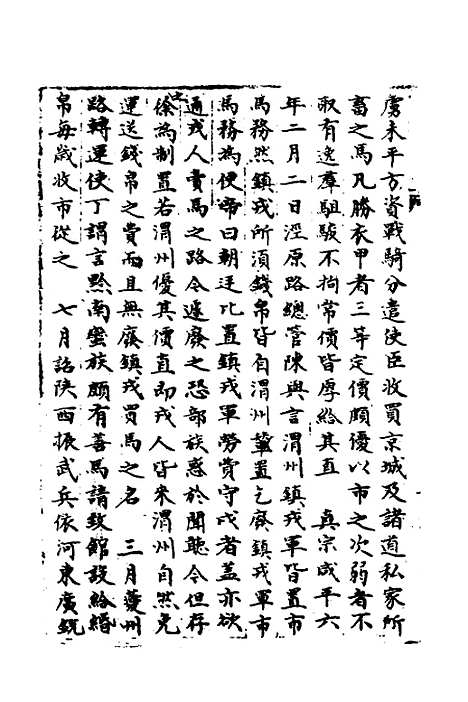 虜未平方資戰騎分遣使臣收買京城及諸道私家所
畜之馬凡勝衣甲者三等定價頗優以市之次弱者不
取有逸羣駔駿不拘常價皆厚給其直　真宗咸平六
年二月二日涇原路總管陳興言渭州鎮戎軍皆置市
馬務然鎮戎所須錢帛皆自渭州輦置乞廢鎮戎軍市
馬務為便帝曰朝廷比置鎮戎軍勞費守戍者蓋亦欲
通戎人賣馬之路今遽廢之恐部族惑於聞聽令但存
徐為制置若渭州優其價直即戎人皆來渭州自然免
運送錢帛之費而且無廢鎮戎買馬之名　三月夔州
路轉運使丁謂言黔南蠻族頗有善馬請致館設給緡
帛每歲收市從之　七月詔陝西振武兵依河東廣銳